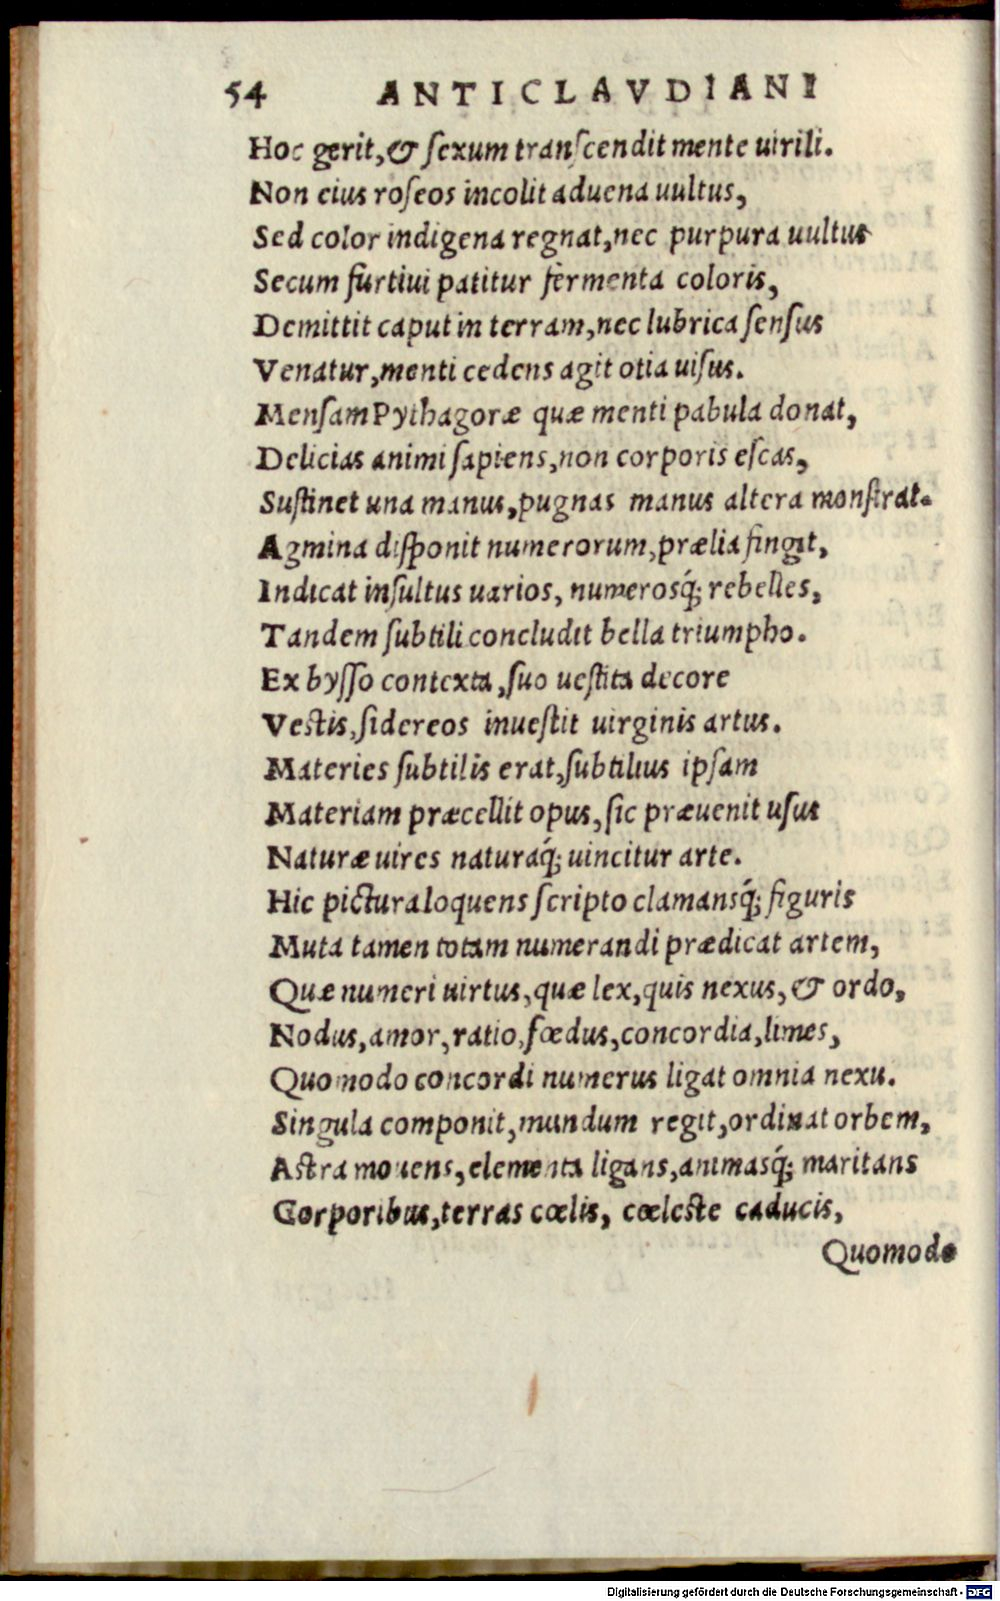 54 ANTICLAVDIANI
Hoc gerit, & ſexum tranſcendit mente uirili.
Non eius roſeos incolit aduena uultus,
Sed color indigena regnat, nec purpura uultus
Secum furtiui patitur fermenta coloris,
Demittit caput in terram, nec lubrica ſenſus
Venatur, menti cedens agit otia uiſus.
Menſam Pythagoræ quæ menti pabula donat,
Delicias animi ſapiens, non corporis eſcas,
Suſtinet una manus, pugnas manus altera monſtrat.
Agmina diſponit numerorum, prælia fingit,
Indicat inſultus uarios, numerosq́; rebelles,
Tandem ſubtili concludit bella triumpho.
Ex byſſo contexta, ſuo ueſtita decore
Vestis, ſidereos inueſtit uirginis artus.
Materies ſubtilis erat, ſubtilius ipſam
Materiam præcellit opus, ſic præuenit uſus
Naturæ uires naturaq́; uincitur arte.
Hic pictura loquens ſcripto clamansq́; figuris
Muta tamen totam numerandi prædicat artem,
Quæ numeri uirtus, quæ lex, quis nexus, & ordo,
Nodus, amor, ratio, fœdus, concordia, limes,
Quomodo concordi numerus ligat omnia nexu.
Singula componit, mundum regit, ordinat orbem,
Astra mouens, elementa ligans, animasq́; maritans
Corporibus, terras cœlis, cœleste caducis,
Quomodo
Digitalisierung gefördert durch die Deutsche Forschungsgemeinschaft - DFG